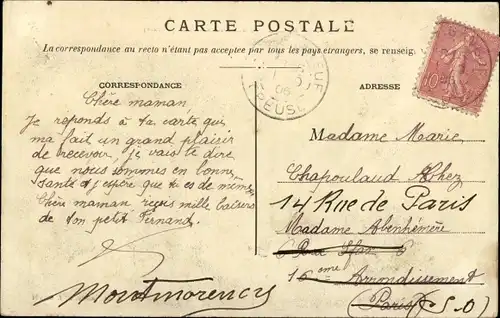 CARTE POSTALE
La correspondance au recto n'étant pas acceptée par tous les pays étrangers, se renseig.
CORRESPONDANCE
ADRESSE
Chère maman
Je reponds à ta carte qui
ma fait un grand plaisir
de recevoir, je vais te dire
que nous sommes en bonne
santé et j'espère que tu es de même
Chère maman reçois mille baisers
de ton petit Fernand.
Madame Marie
Chapoulaud Chez
14 Rue de Paris
Madame Abenhémère
6 Rue 6
16 ème Arrondissement
(Paris) (S.O)
Montmorency
CREUSE
06
10